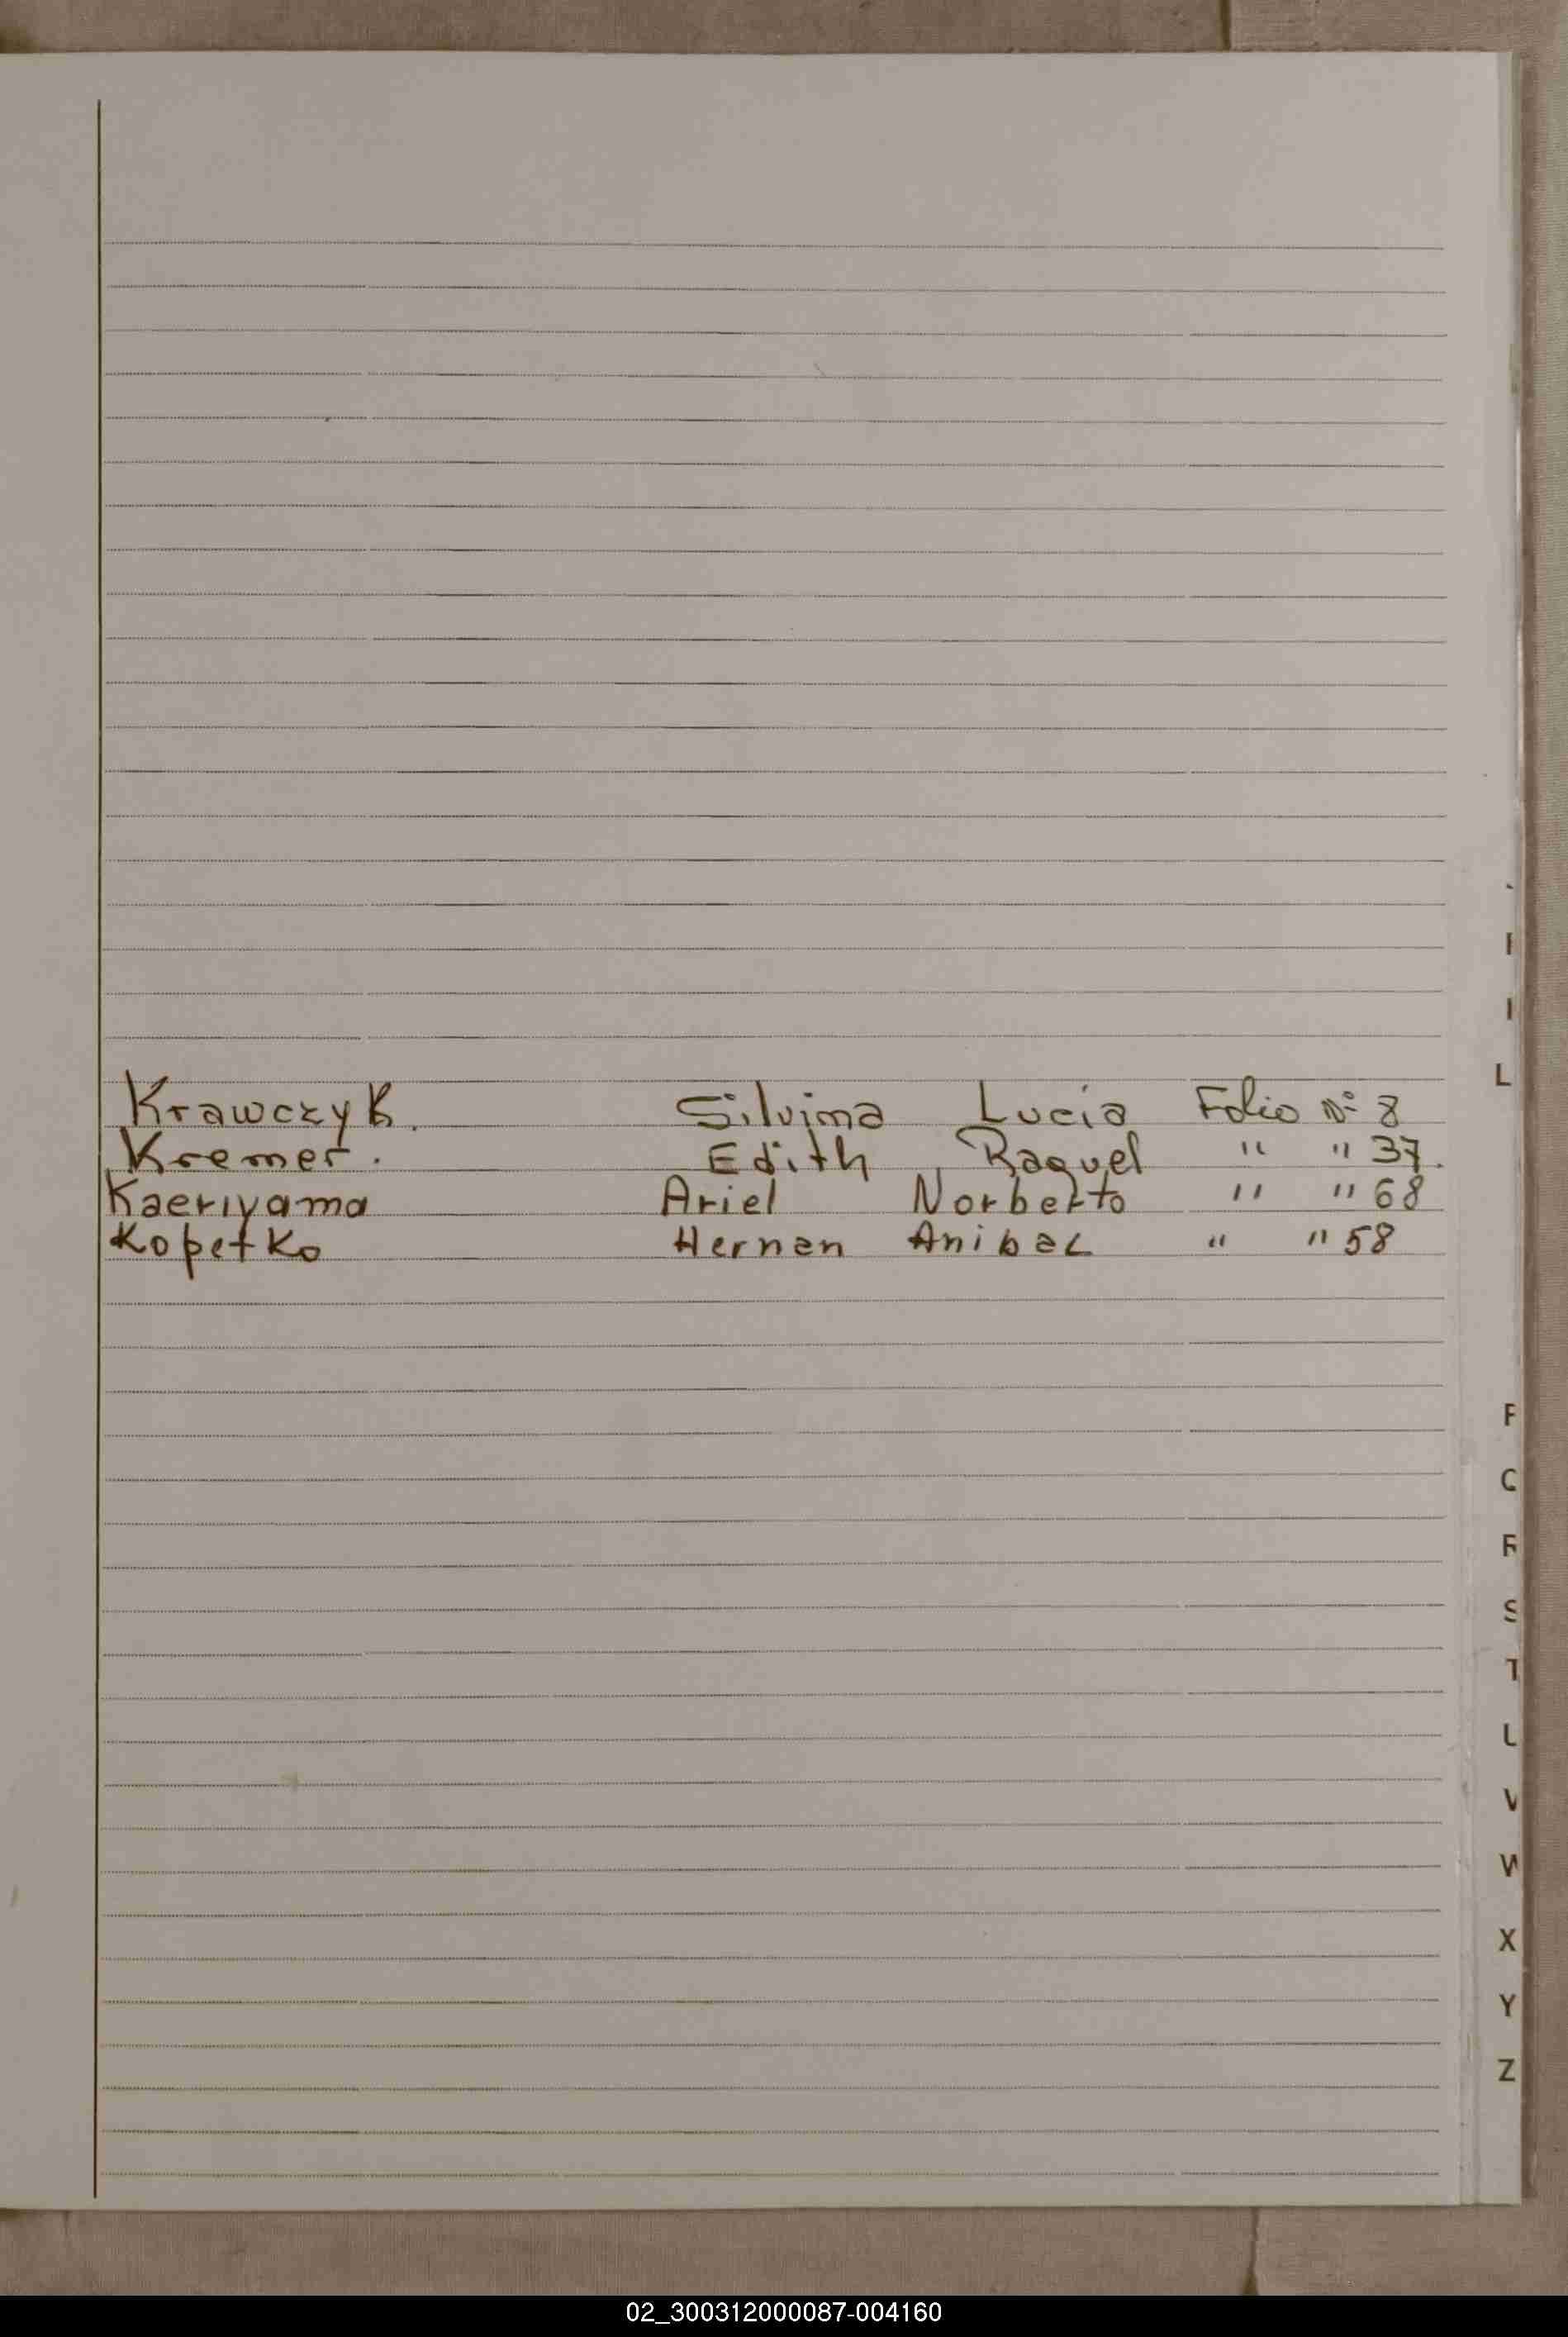 L
Krawczyk. Silvina Lucia Folio Nº 8
Kremer. Edith Raquel " " 37.
Kaeriyama Ariel Norberto " " 68
Kopetko Hernan Anibal " " 58
R
S
T
U
V
W
X
Y
Z
02_300312000087-004160